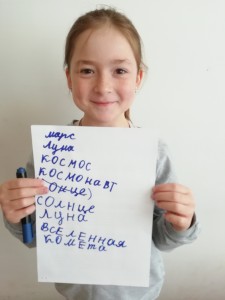 марс
Луна
КОСМОС
КОСМОНАВТ
СОЛНЦЕ
ЛУНА
ВСЕЛЕННАЯ
КОМЕТА